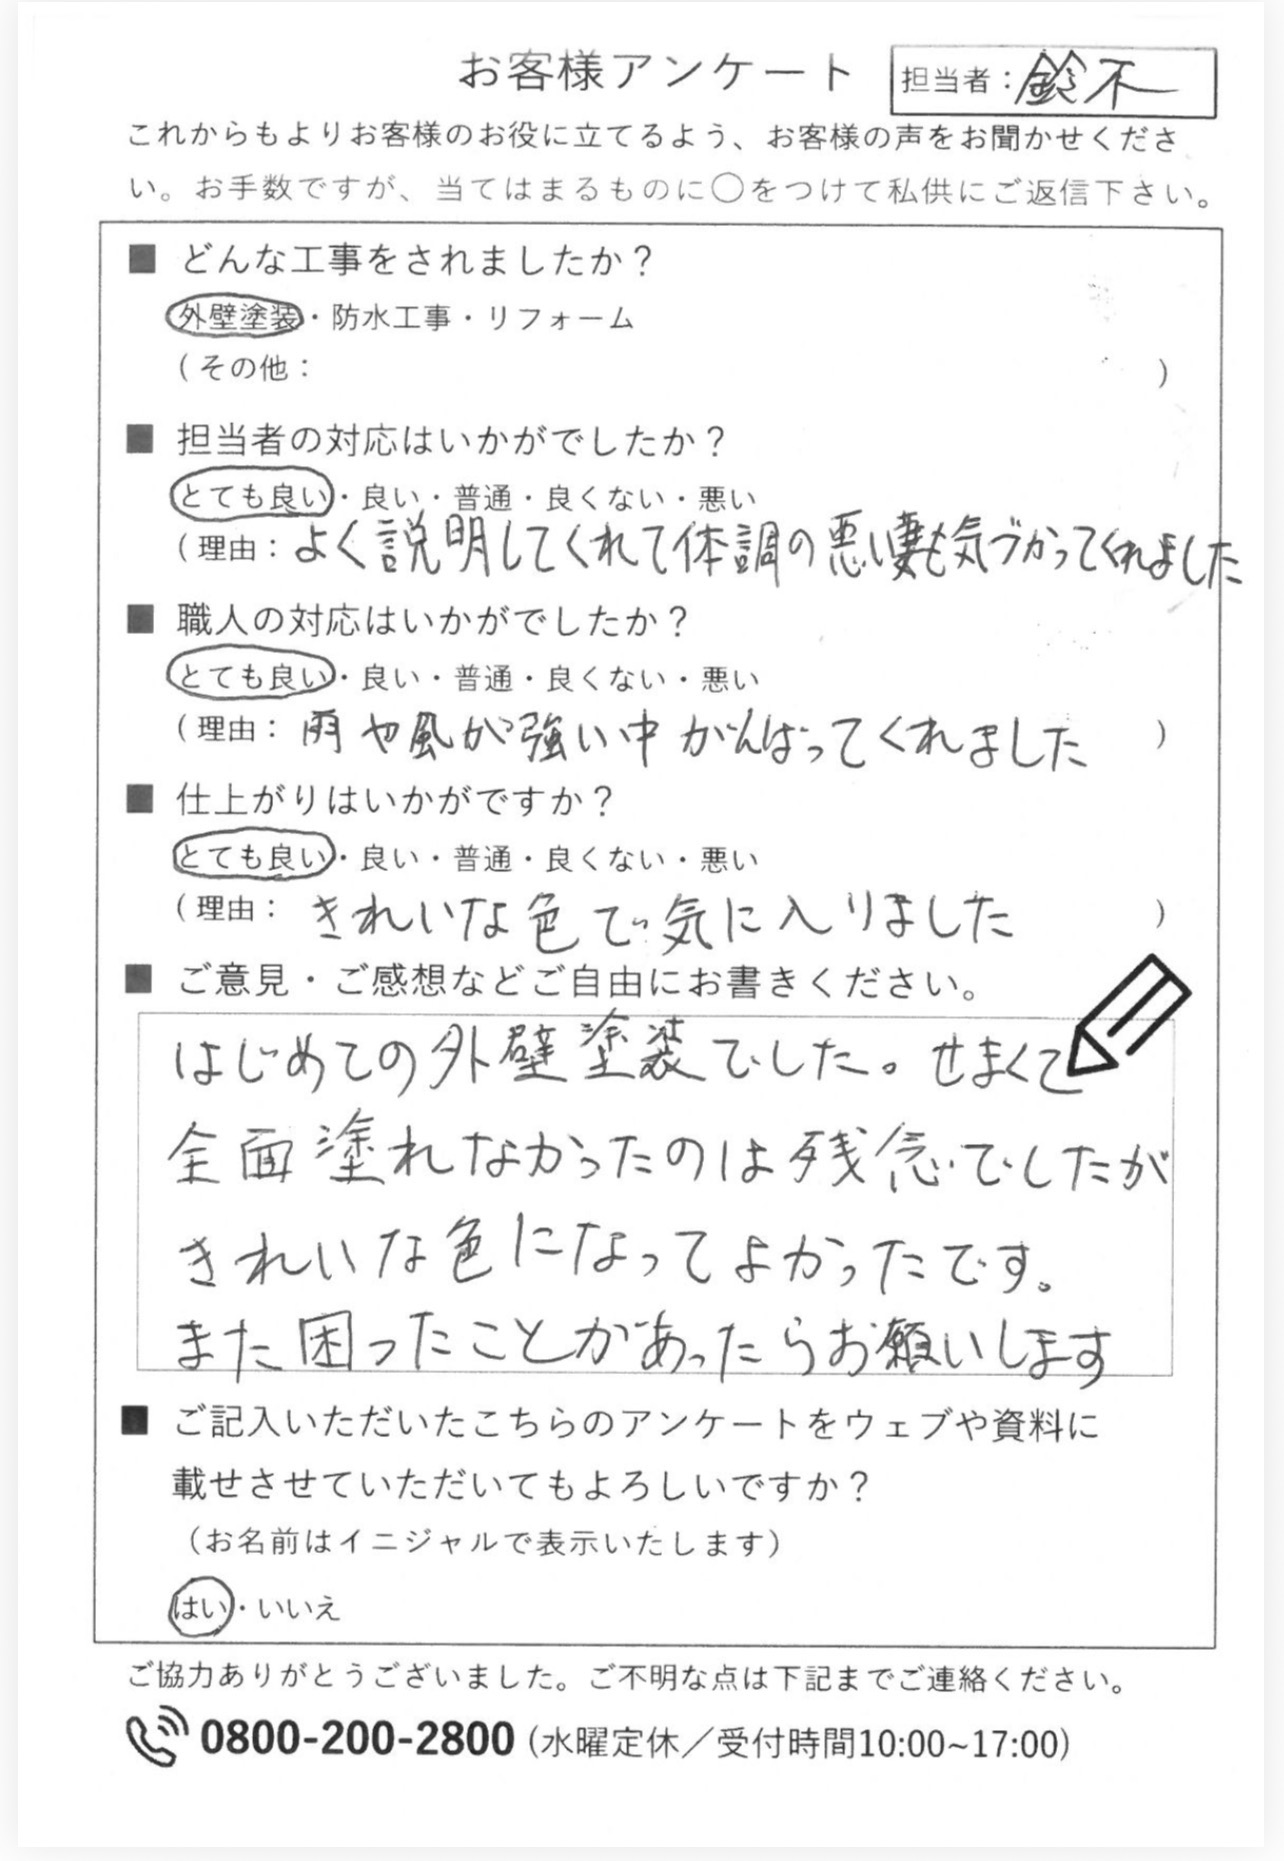 お客様アンケート
担当者：鈴木
これからもよりお客様のお役に立てるよう、お客様の声をお聞かせくださ
い。お手数ですが、当てはまるものに〇をつけて私供にご返信下さい。
■ どんな工事をされましたか？
外壁塗装・防水工事・リフォーム
（その他：　）
■ 担当者の対応はいかがでしたか？
とても良い・良い・普通・良くない・悪い
（理由：よく説明してくれて体調の悪い妻も気づかってくれました
■ 職人の対応はいかがでしたか？
とても良い・良い・普通・良くない・悪い
（理由：雨や風が強い中がんばってくれました　）
■ 仕上がりはいかがですか？
とても良い・良い・普通・良くない・悪い
（理由：きれいな色で気に入りました　）
■ ご意見・ご感想などご自由にお書きください。
はじめての外壁塗装でした。せまくて
全面塗れなかったのは残念でしたが
きれいな色になってよかったです。
また困ったことがあったらお願いします
■ ご記入いただいたこちらのアンケートをウェブや資料に
載せさせていただいてもよろしいですか？
（お名前はイニジャルで表示いたします）
はい・いいえ
ご協力ありがとうございました。ご不明な点は下記までご連絡ください。
0800-200-2800（水曜定休／受付時間10:00~17:00）